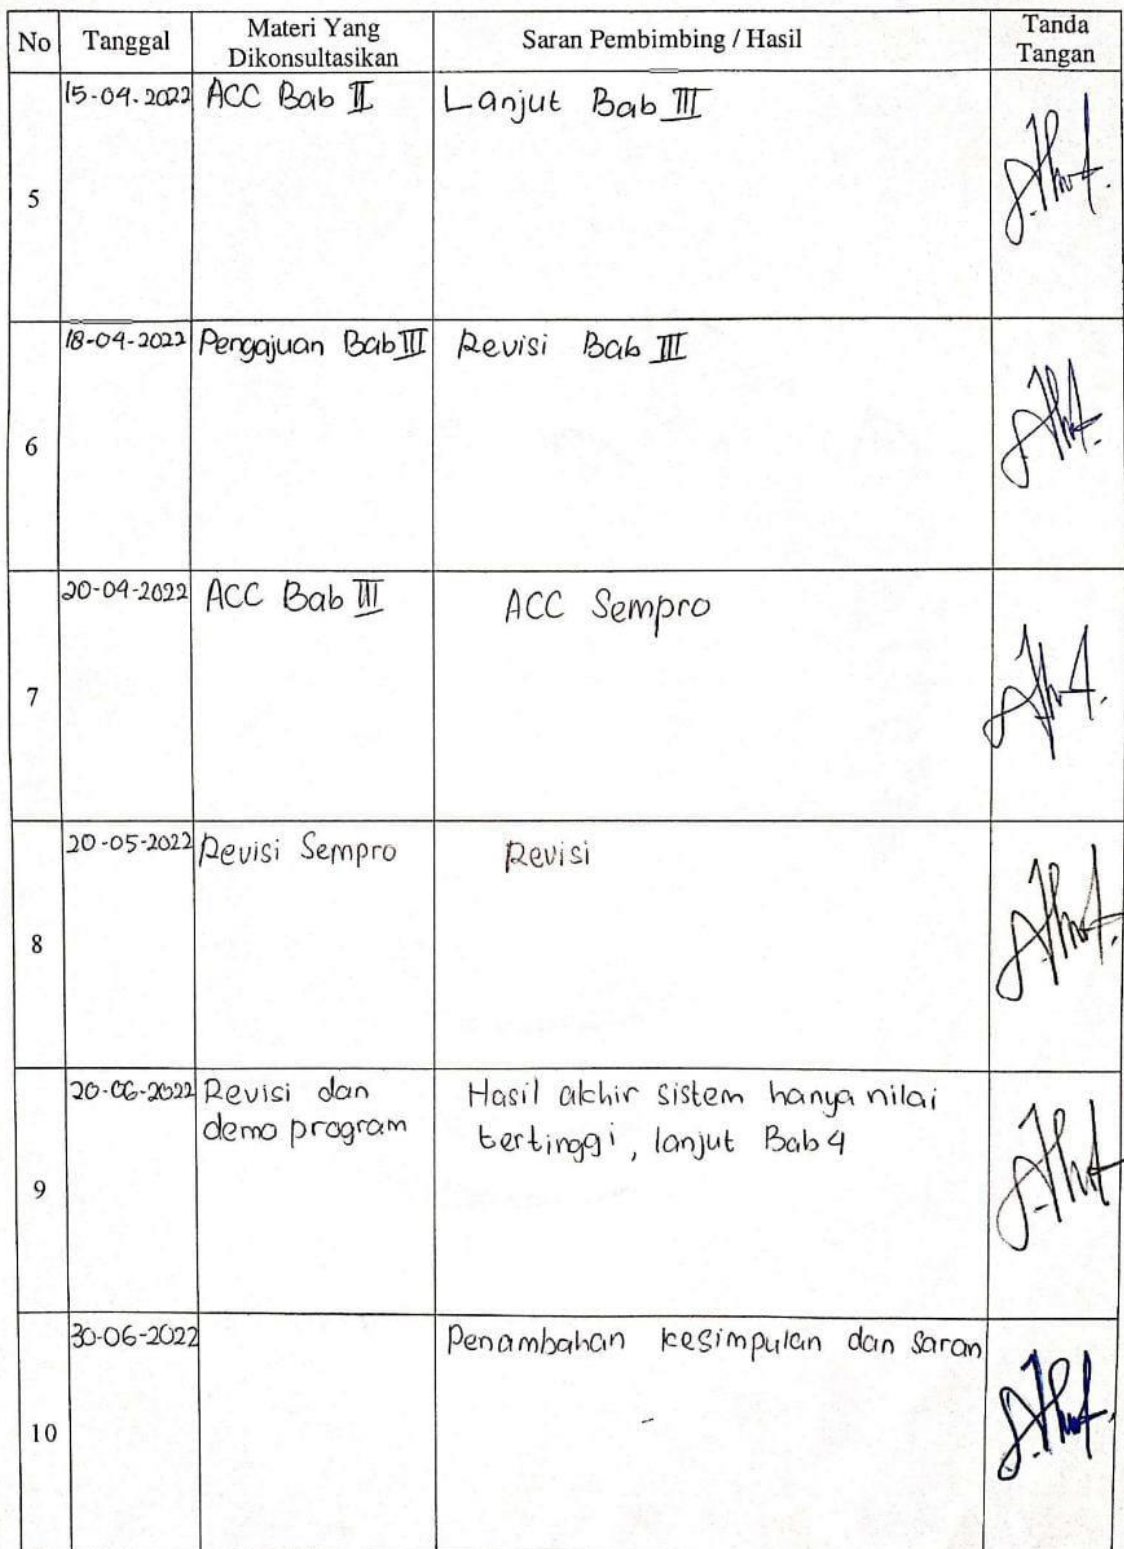 No Tanggal Materi Yang Dikonsultasikan Saran Pembimbing / Hasil Tanda Tangan
5 15-04-2022 ACC Bab II Lanjut Bab III
6 18-04-2022 Pengajuan Bab III Revisi Bab III
7 20-04-2022 ACC Bab III ACC Sempro
8 20-05-2022 Revisi Sempro Revisi
9 20-06-2022 Revisi dan Hasil akhir sistem hanya nilai
demo program tertinggi, lanjut Bab 4
10 30-06-2022 Penambahan kesimpulan dan saran